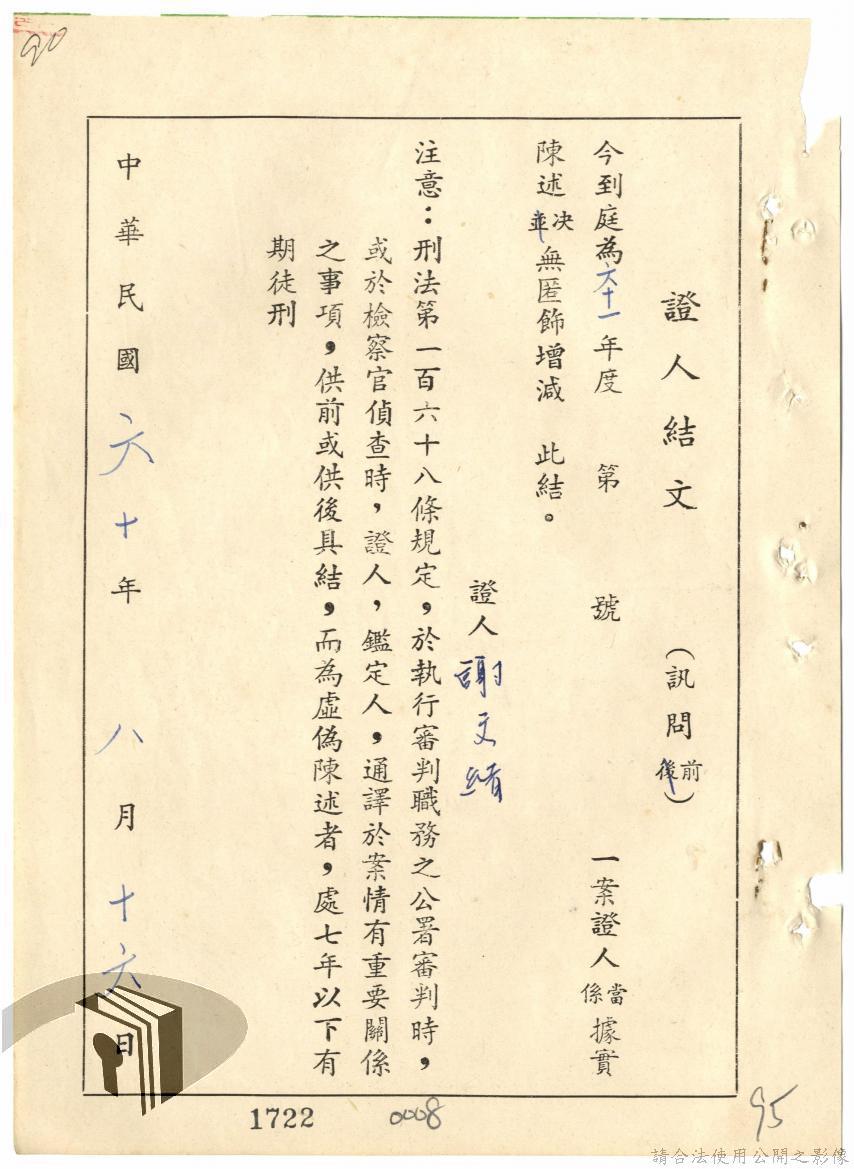 90
證人結文 (訊問前後)
今到庭為六十一年度 第 號 一案證人當係據實
陳述決並無匿飾增減 此結。
證人 謝文緒
注意:刑法第一百六十八條規定,於執行審判職務之公署審判時,
或於檢察官偵查時,證人,鑑定人,通譯於案情有重要關係
之事項,供前或供後具結,而為虛偽陳述者,處七年以下有
期徒刑
中華民國六十年八月十六日
1722
0008
95
請合法使用公開之影像